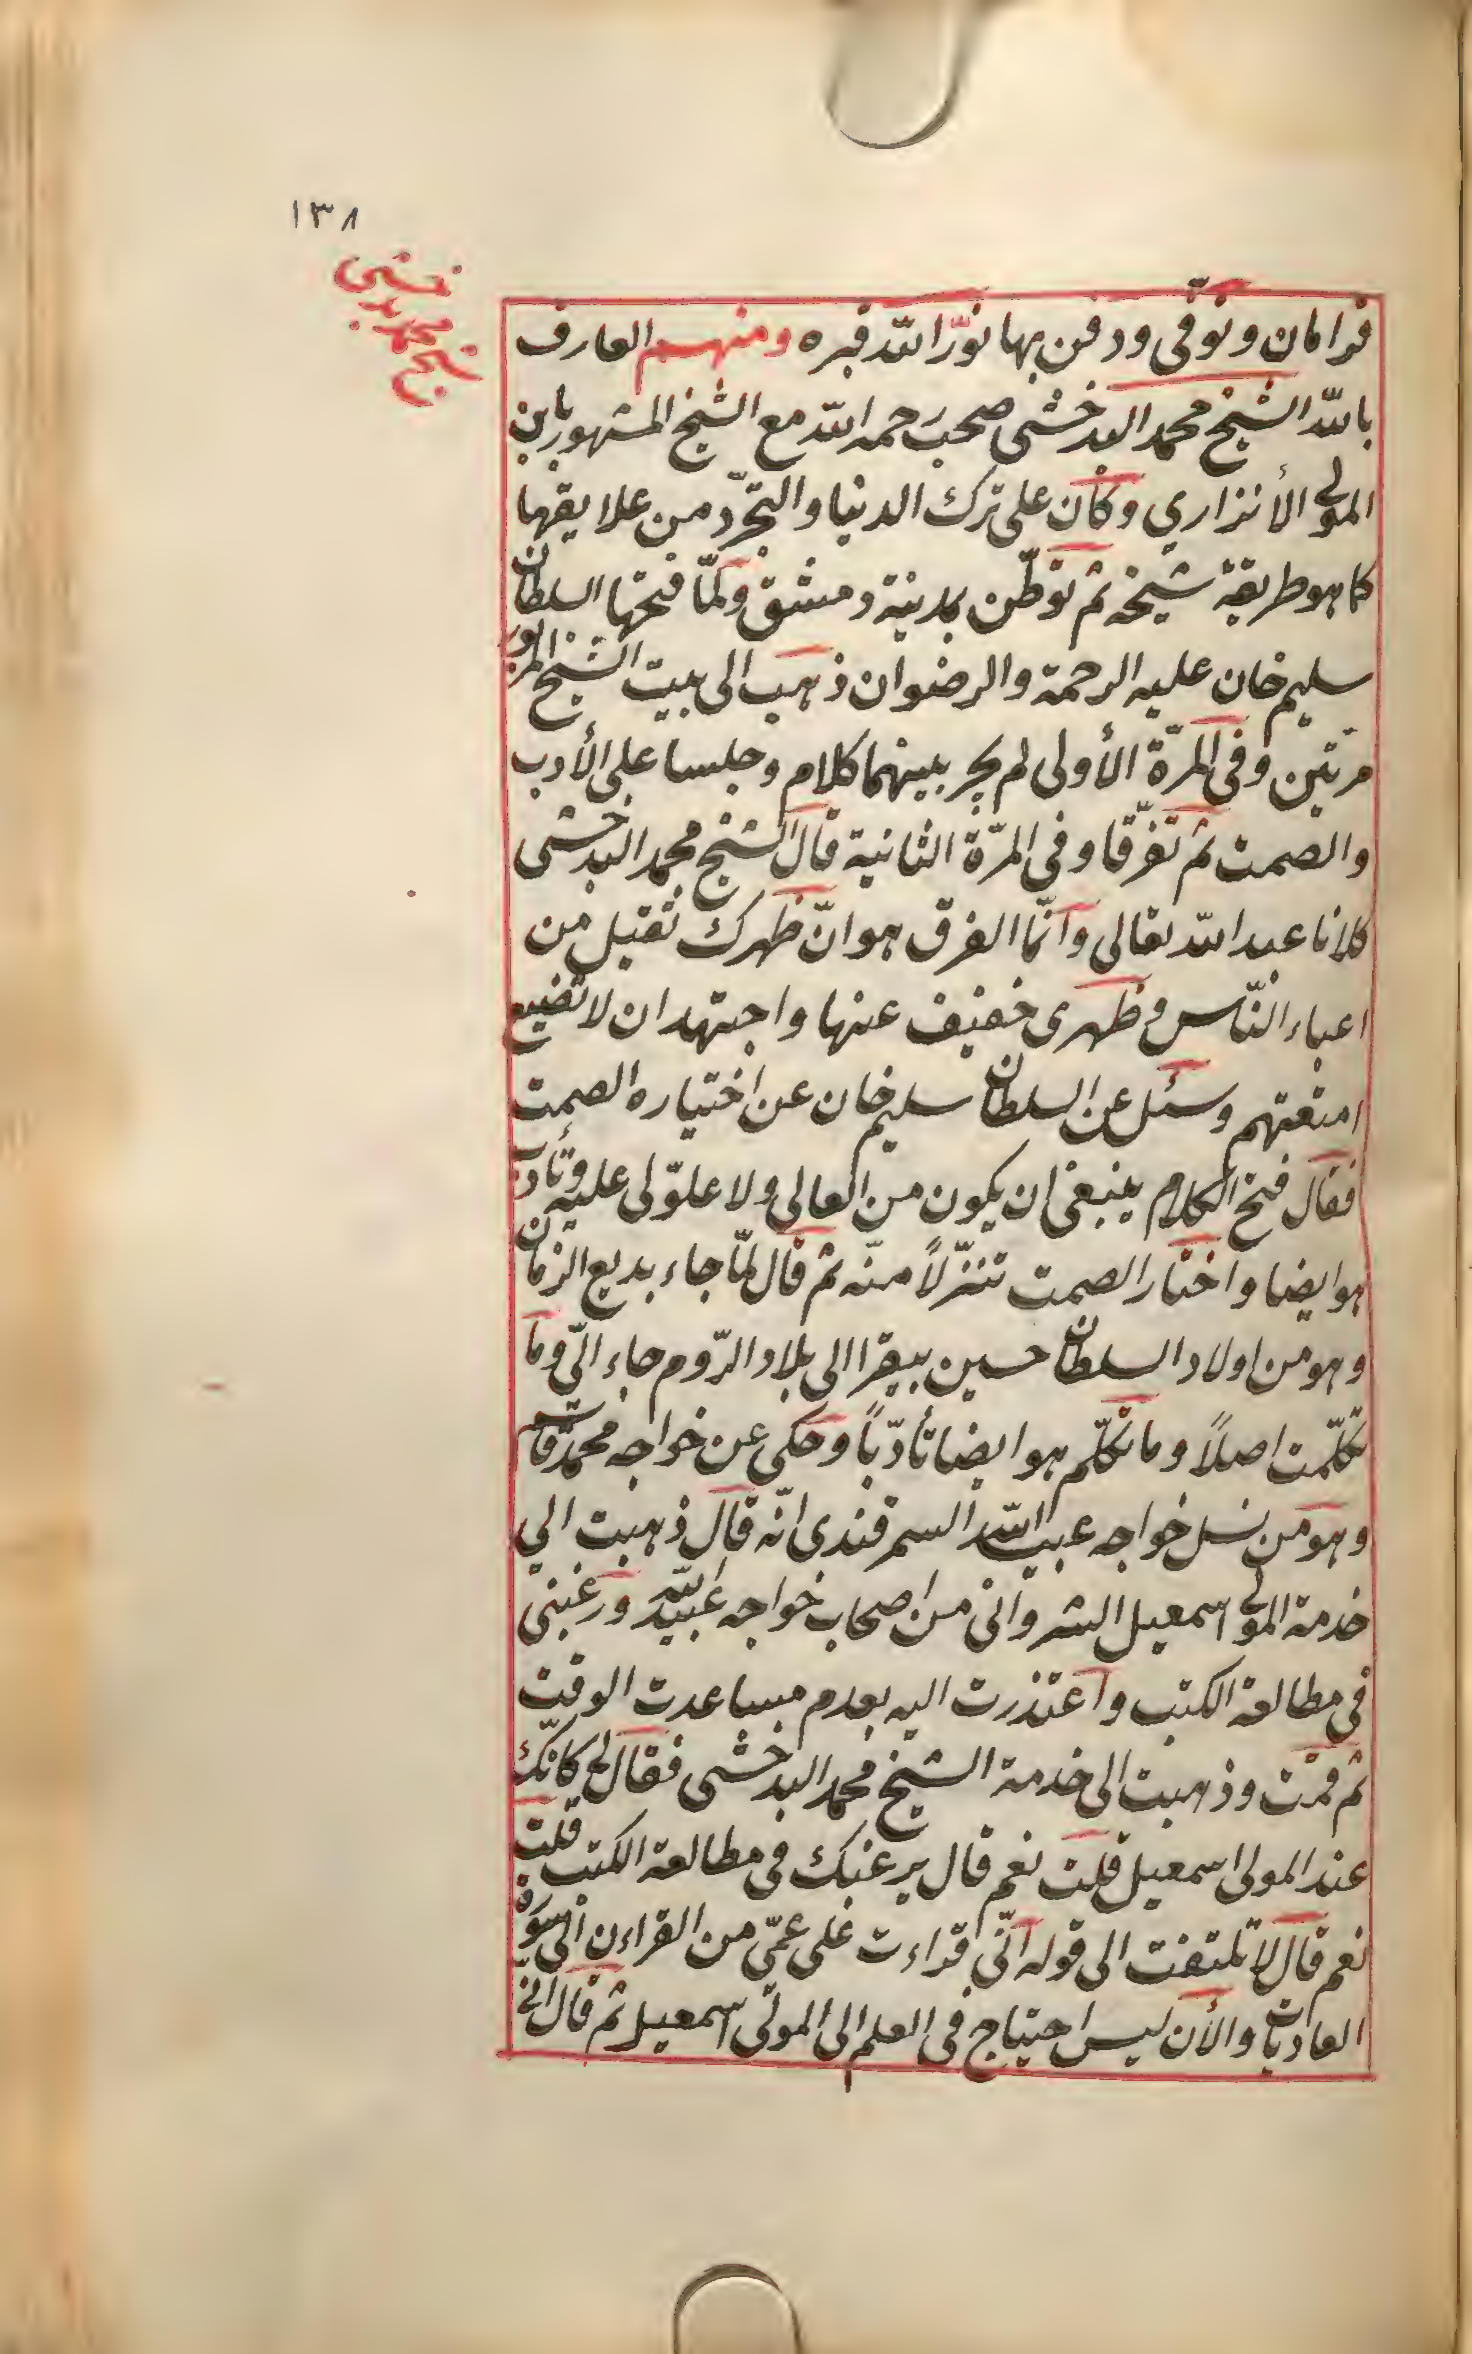 ١٣٨
شيخ محمد بدخشى
قرامان وتوفى ودفن بها نوّر اللّه قبره ومنهم العارف
باللّه الشيخ محمد البدخشى صحب رحمه اللّه مع الشيخ المشهور بابن
المولى الأنزاري وكان على ترك الدنيا والتجرّد من علايقها
كما هو طريقة شيخه ثم توطّن بمدينة دمشق ولمّا فتحها السلطان
سليم خان عليه الرحمة والرضوان ذهب الى بيت الشيخ المزبور
مرتين وفى المرّة الأولى لم يجر بينهما كلام وجلسا على الأدب
والصمت ثم تفرّقا وفى المرّة الثانية قال الشيخ محمد البدخشى
كلانا عبد اللّه تعالى وانّما الفرق هو انّ ظهرك ثقيل من
اعباء النّاس وظهرى خفيف عنها واجتهد ان لا تضيع
امتعتهم وسئل عن السلطان سليم خان عن اختياره الصمت
فقال فتح الكلام ينبغى ان يكون من العالى ولا علوّ لى عليه وتأدب
هو ايضا واختار الصمت تنزّلاً منه ثم قال لمّا جاء بديع الزمان
وهو من اولاد السلطان حسين بيقرا الى بلاد الرّوم جاء الىّ وما
تكلّمت اصلاً وما تكلّم هو ايضا تأدّباً وحكى عن خواجه محمد قاسم
وهو من نسل خواجه عبيد اللّه السمرقندى انّه قال ذهبت الي
خدمة المولى اسمعيل الشروانى من اصحاب خواجه عبيد اللّه ورغبنى
فى مطالعة الكتب واعتذرت اليه بعدم مساعدت الوقت
ثم قمت وذهبت الى خدمة الشيخ محمد البدخشى فقال لى كانّك
عند المولى اسمعيل قلت نعم قال يرغبك فى مطالعة الكتب قلت
نعم قال لا تلتفت الى قوله انّى قراءت على عمّى من القراءن الى سورة
العاديات والأن ليس احتياج فى العلم الى المولى اسمعيل ثم قال انّى